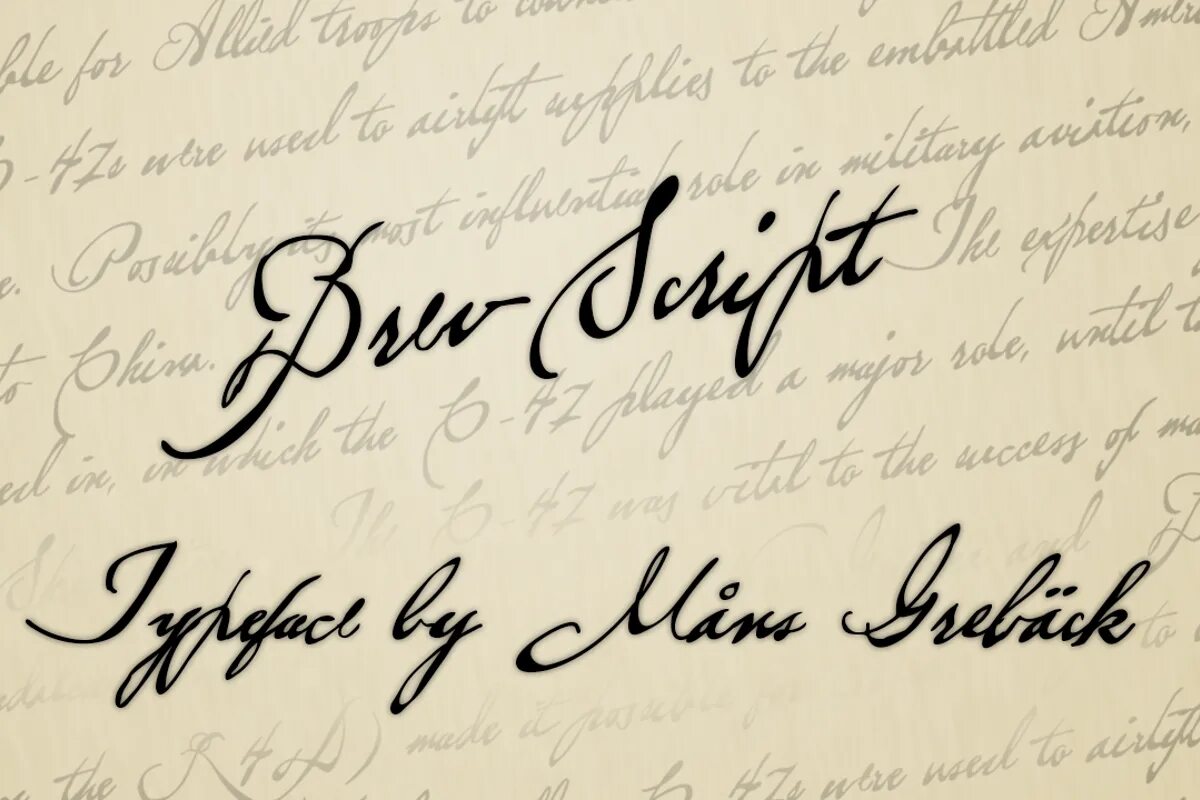 ble for Allied troops to
C-47s were used to airlift supplies to the embattled
e. Possibly its most influential role in military aviation,
Brev Script
The expertise
to China.
in, in which the C-47 played a major role, until
Typeface by Måns Grebäck
The C-47 was vital to the success of
and
to
the R4D) made it possible for
C-47s were used to airlift